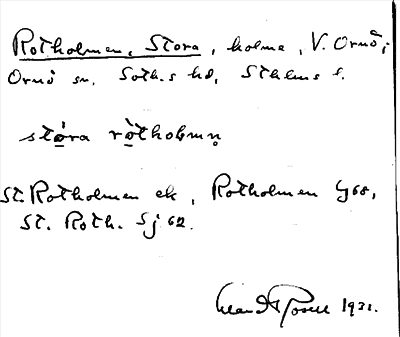 Rotholmen, Stora, holme, V. Ornö;
Ornö sn, Soth.s hd, Sthlms l.
stóra ròtholmn̥
St. Rotholmen ek, Rotholmen Gj 68,
St. Roth. Sj 62.
1931.